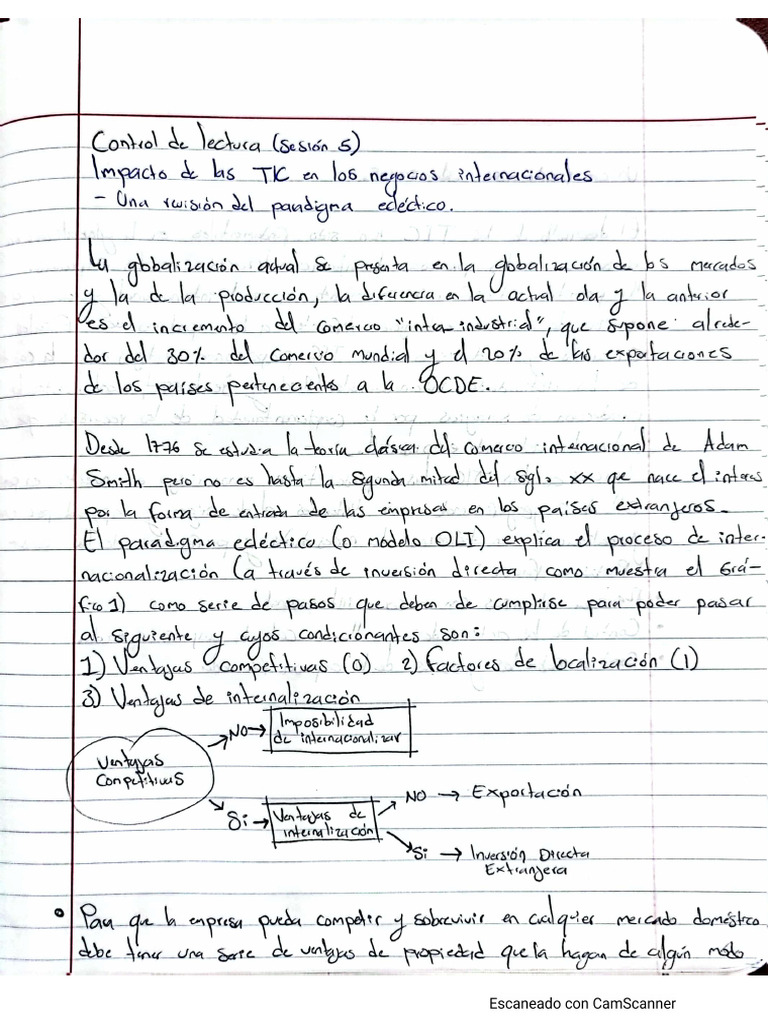 Control de lectura (Sesión 5)
Impacto de las TIC en los negocios internacionales
- Una revisión del paradigma ecléctico.
La globalización actual se presenta en la globalización de los mercados
y la de la producción, la diferencia en la actual ola y la anterior
es el incremento del comercio "inter industrial", que supone alrede-
dor del 30% del comercio mundial y el 20% de las exportaciones
de los países pertenecientes a la OCDE.
Desde 1776 se estudia la teoría clásica del comercio internacional de Adam
Smith pero no es hasta la segunda mitad del siglo xx que nace el interes
por la forma de entrada de las empresas en los países extranjeros.
El paradigma ecléctico (o modelo OLI) explica el proceso de inter-
nacionalización (a través de inversión directa como muestra el Grá-
fico 1) como serie de pasos que deben de cumplirse para poder pasar
al siguiente y cuyos condicionantes son:
1) Ventajas competitivas (O) 2) Factores de localización (1)
3) Ventajas de internalización
Ventajas
Competitivas
NO → Imposibilidad
de internacionalizar
Si → Ventajas de
internalización
NO → Exportación
Si → Inversión Directa
Extranjera
• Para que la empresa pueda competir y sobrevivir en cualquier mercado doméstico
debe tener una serie de ventajas de propiedad que la hagan de algún modo
Escaneado con CamScanner